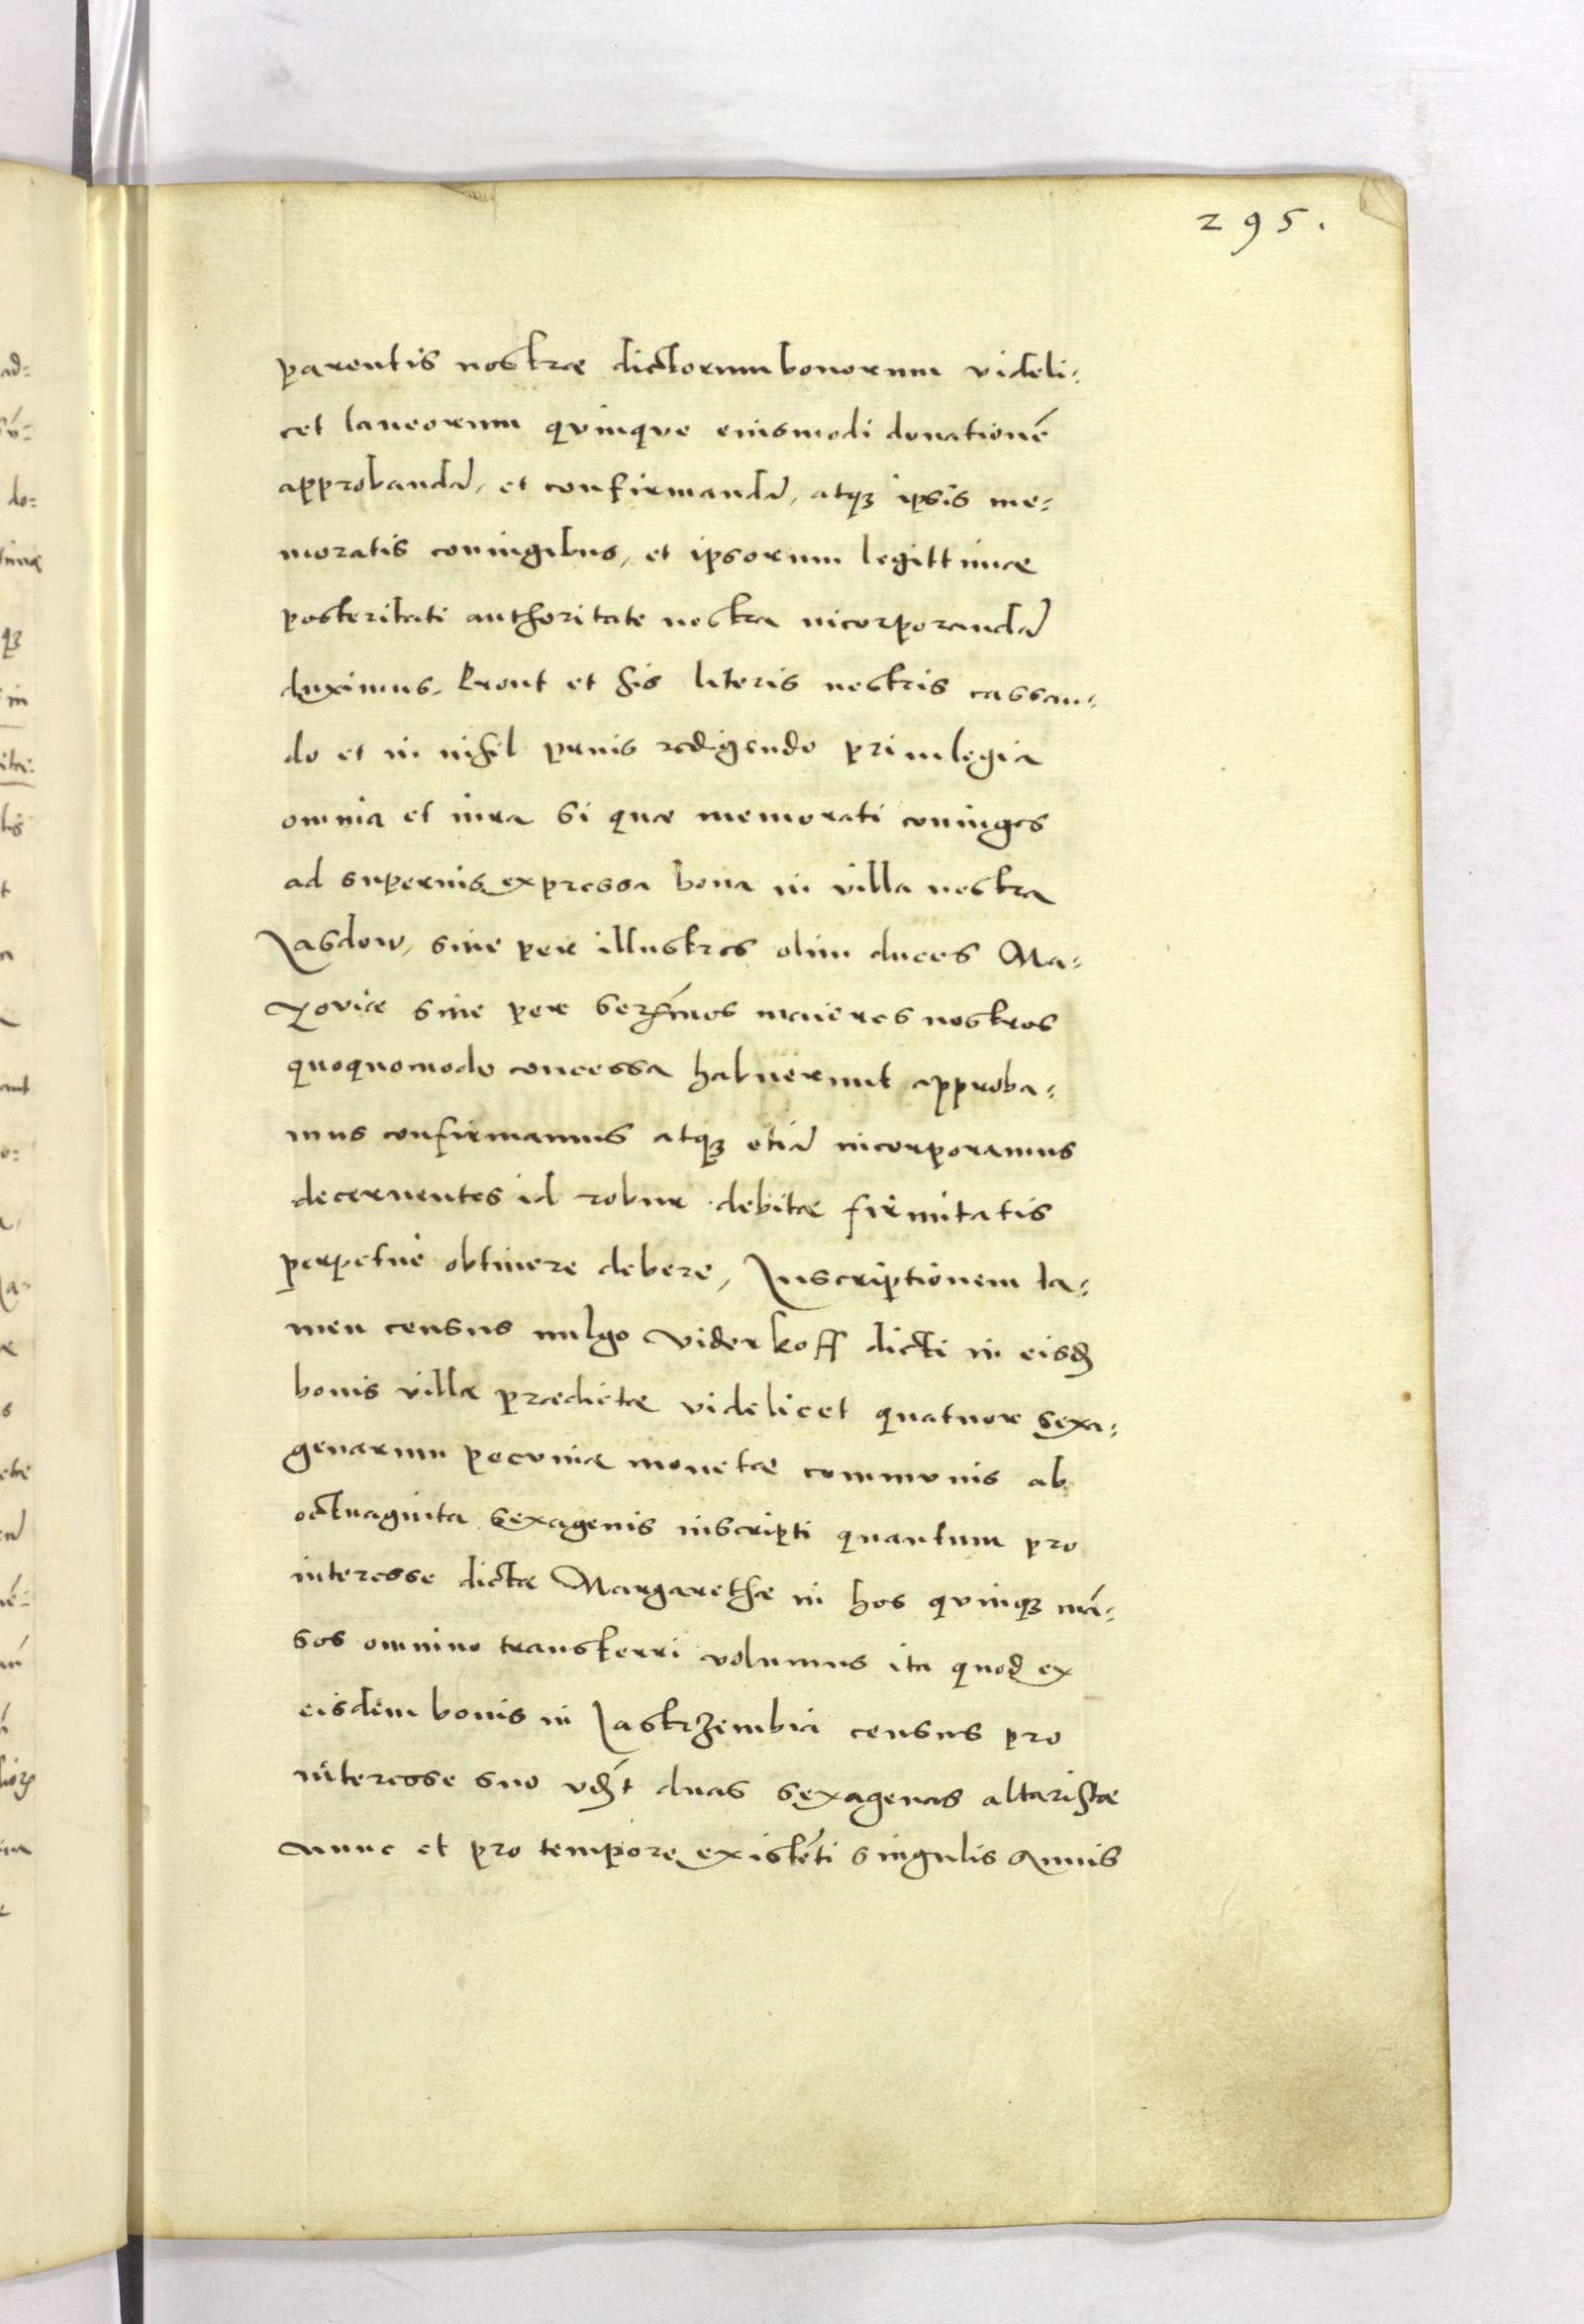 295.
parentis nostræ dictorum bonorum videli:
cet laneorum quinque eiusmodi donationē
approbandā, et confirmandā, atqȝ ipsis me:
moratis coniugibus, et ipsorum legittimæ
posteritati authoritate nostra incorporandā
duximus. Prout et his literis nostris cassan:
do et in nihil prius redigendo priuilegia
omnia et iura si quæ memorati coniuges
ad superius expressa bona in villa nostra
Jasdow, siue per illustres olim duces Ma:
zoviæ siue per serēmos maiores nostros
quoquomodo concessa habuerunt approba:
mus confirmamus atqȝ etiā incorporamus
decernentes id robur debitæ firmitatis
perpetuè obtinere debere, Inscriptionem ta:
men census uulgo viderkoff dicti in eisdē
bonis villæ prædictæ videlicet quatuor sexa:
genarum pecuniæ monetæ communis ab
octuaginta sexagenis inscripti quantum pro
interesse dictæ Margarethæ in hos quinqȝ mā:
sos omnino transferri volumus ita quod ex
eisdem bonis in Jastrzembia census pro
interesse suo vdēt duas sexagenas altaristæ
nunc et pro tempore existēti singulis annis